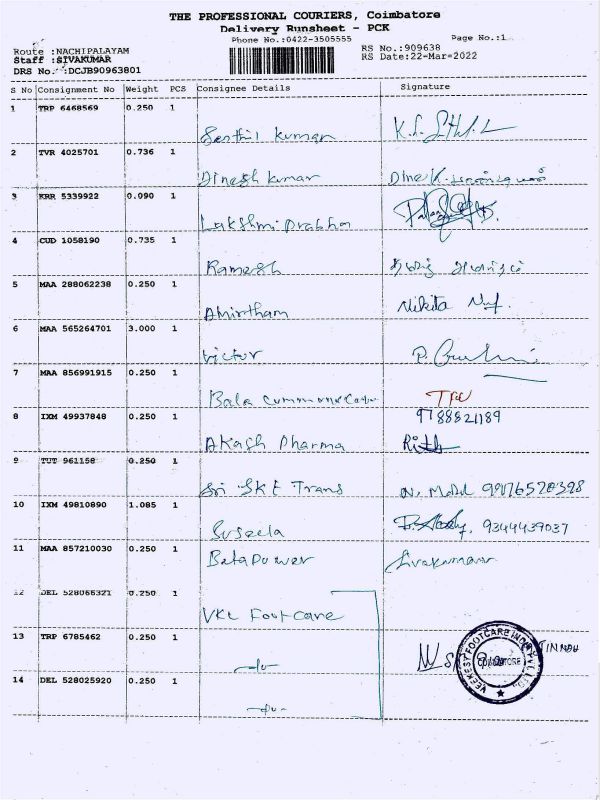 THE PROFESSIONAL COURIERS, Coimbatore
Delivery Runsheet - PCK
Phone No.:0422-3505555 Page No.:1
Route :NACHIPALAYAM RS No.:909638
Staff :SIVAKUMAR RS Date:22-Mar-2022
DRS No. :DCJB90963801
S No Consignment No Weight PCS Consignee Details Signature
1 TRP 6468569 0.250 1
Senthil Kumar
2 TVR 4025701 0.736 1
Dinesh Kumar
3 KRR 5339922 0.090 1
Lakshmi Prabha
4 CUD 1058190 0.735 1
Ramesh
5 MAA 288062238 0.250 1
Amirtham Nikita
6 MAA 565264701 3.000 1
Victor
7 MAA 856991915 0.250 1
Bala Communication
8 IXM 49937848 0.250 1 9788821189
Akash Pharma
9 TUT 961158 0.250 1
Sri SKT Trans
10 IXM 49810890 1.085 1
Suseela 9344439037
11 MAA 857210030 0.250 1
Beta Power Sivakumar
12 DEL 528066321 0.250 1
VKC Footcare
13 TRP 6785462 0.250 1
VEEKESY FOOTCARE INDIA PVT. LTD.
COIMBATORE
14 DEL 528025920 0.250 1